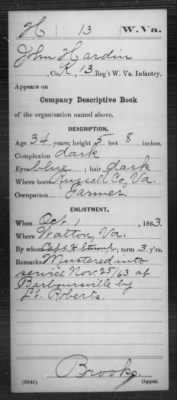 H 13 W.Va.
John Hardin
, Co. K, 13 Reg't W. Va. Infantry.
Appears on
Company Descriptive Book
of the organization named above.
DESCRIPTION.
Age 34 years; height 5 feet 8 inches.
Complexion dark
Eyes blue ; hair dark
Where born Russell Co, Va.
Occupation Farmer
ENLISTMENT.
When Oct 1 , 1863.
Where Walton, Va.
By whom Capt. H. Stump; term 3 y'rs.
Remarks Mustered into
service Nov. 25/63 at
Barboursville by
Lt. Roberts.
Brooks
Copyist.